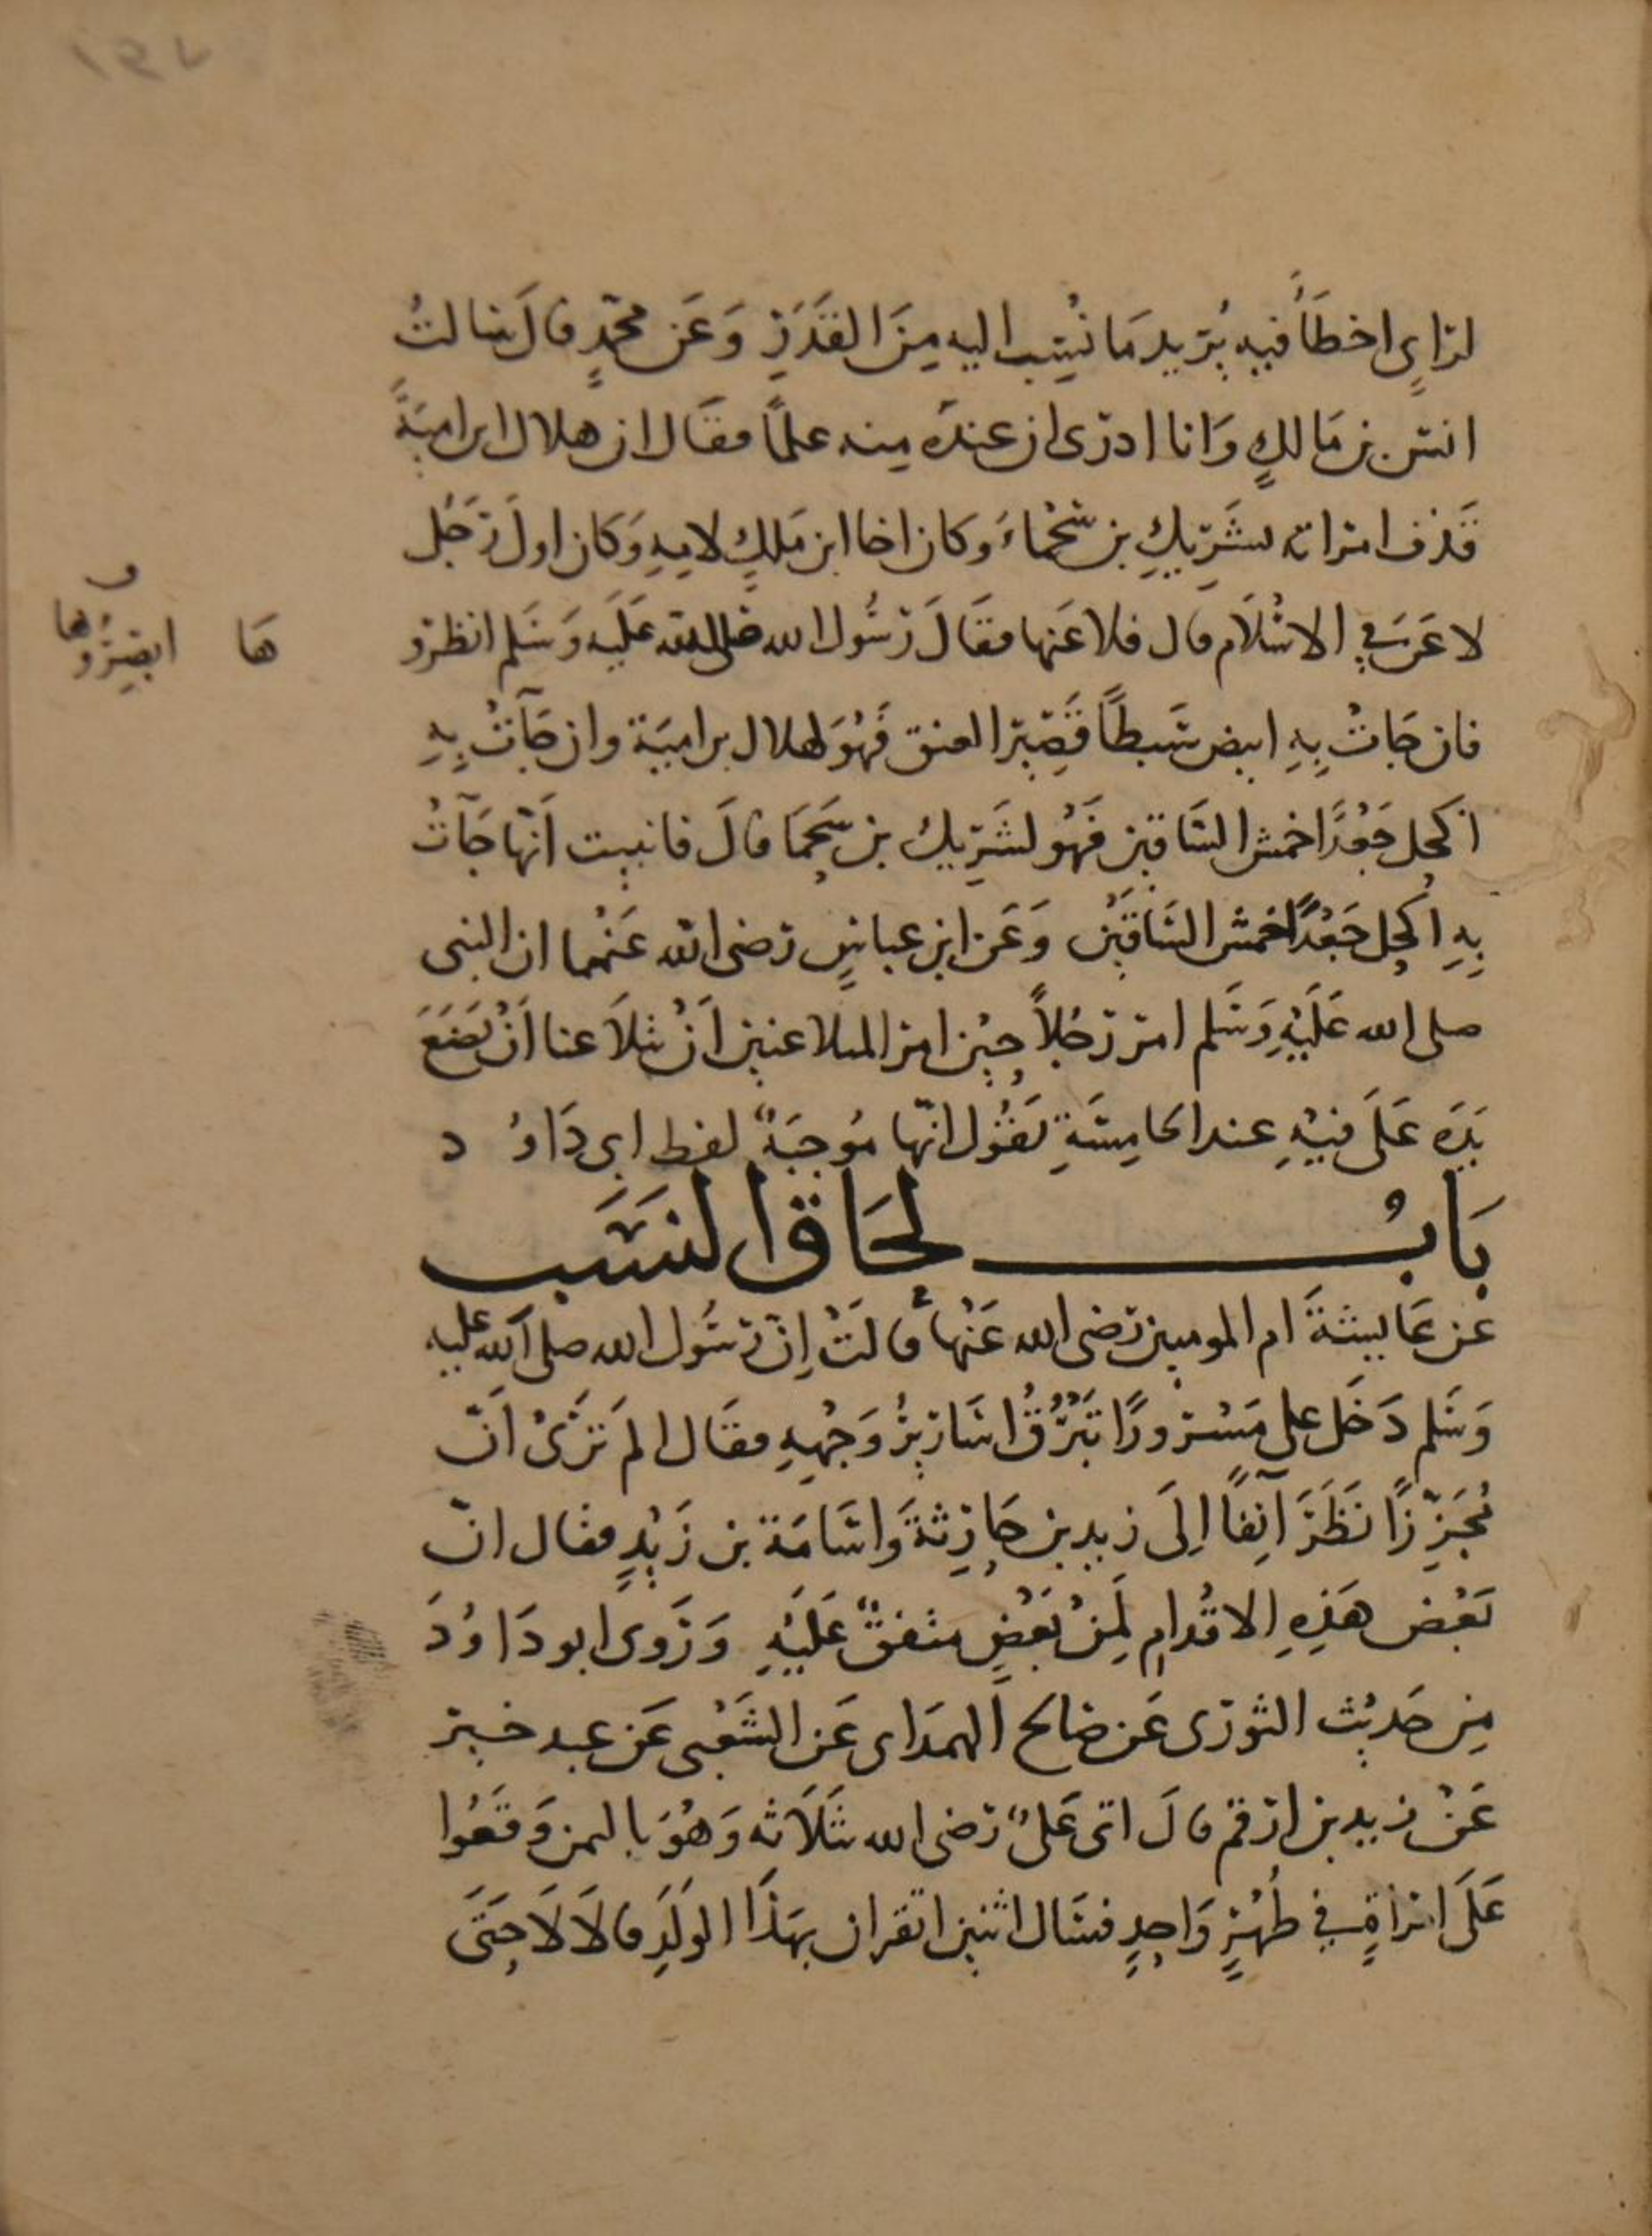 ١٩٧
لرَايٍ اخطَأَ فيهِ يُريد مَا نُسِب اليه مِنَ القَدَرِ وَعَن محمّدٍ قالَ سَالتُ
انس بن مَالكٍ وَانا ادرى ان عندَه مِنه علمًا فقَال ان هلال ابن اميَةَ
قَذف امراته بشَرِيكِ بن سَحْمَاءَ وكان اخا ابن مَلكٍ لامِهِ وَكان اولَ رَجُل
لاعَنَ فِي الاسْلَام قال فلاعَنها فقَالَ رَسُول الله صَلى الله عَلَيه وَسَلم انظرو
هَا
ابصِرُوها
فان جَاتْ بِهِ ابيض سَبطًا قَصِير العنق فَهُوَ لهلال بن اميَة وان جَآتْ بِهِ
اكحل جَعْدًا حمش السَاقين فَهُو لشَرِيك بن سَحمَا قالَ فانبيت اَنّها جَآتْ
بِهِ اكحل جَعْدًا حمش السَاقَيْن وَعَن ابن عباسٍ رَضى الله عَنْهما ان النبى
صلى الله عَلَيْهِ وَسَلم امر رَجُلاً حِيْن امر المتلاعنين اَنْ يتلاَعنا اَنْ يَضَعَ
يَدَه عَلَى فيْهِ عند الخامِسَةِ يَقُول انّها مُوجبَةٌ لفظ ابى دَاوُ د
بَابُ لحَاق النسَب
عَن عَايشةَ ام المومنين رَضى الله عَنْها قالتْ إنّ رَسُول الله صلى الله عليه
وَسَلم دَخَل على مَسْرورًا تَبْرُقُ اسَارِيرُ وَجْهِهِ فقَال الم تَرَىْ اَنّ
مُجَزِّزًا نَظَرَ آنِفًا اِلَى زيد بن حَارِثةَ وَاسَامَة بن زَيْدٍ فقال انّ
بَعْض هَذِهِ الاقْدام لَمِنْ بَعْضٍ متفقٌ عَلَيْهِ وَرَوى ابو دَاوُدَ
مِن حَديْث الثورى عَن صَالح الهمَدَاى عَن الشَعْبى عَن عبد خير
عَنْ زيد بن ارقم قالَ اتى عَلىٌ رَضى الله ثَلَاثه وَهُوَ باليمن وَقَعُوا
عَلَى امرَاةٍ فِي طُهْرٍ وَاحِدٍ فسَال اثنين اتقران بهَذَا الوَلَدِ قالَا لَا حَتَى